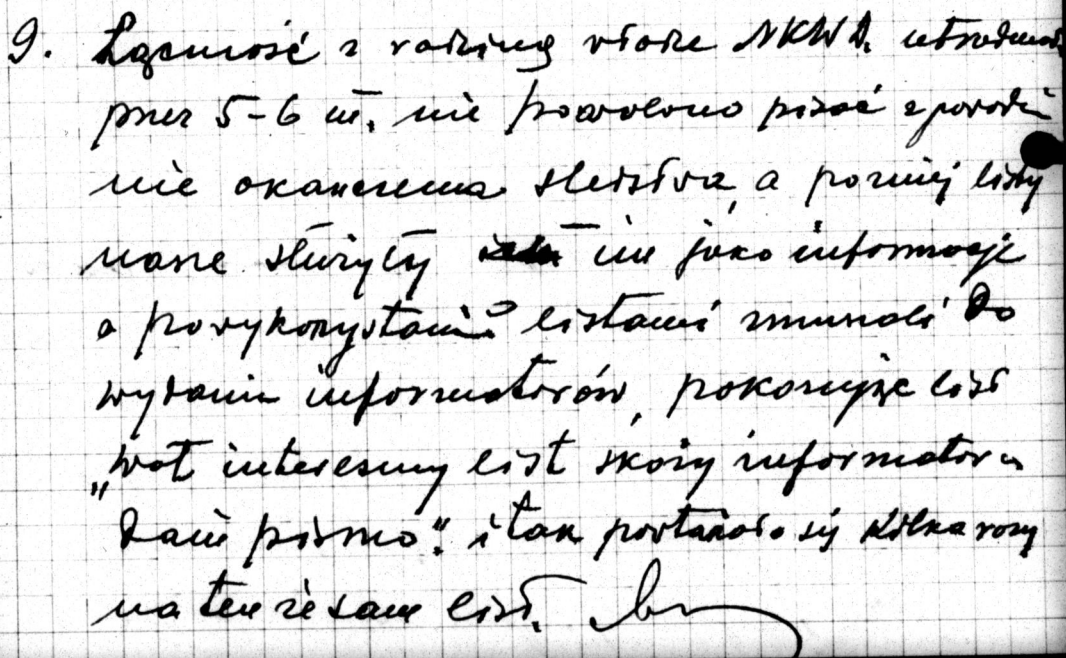 9. Łączność z rodziną władze NKWD. utrudniały
przez 5-6 m. nie pozwolono pisać z powodu
nie okańczenia śledstwa, a pozniej listy
nasze służyły im jako informacje
a powykorzystaniu listami zmusali do
wydania informatorów, pokazując list
„wot interesmy list skazy informatora
dam pismo". i tak powtarzało się kilka razy
na ten że sam list.